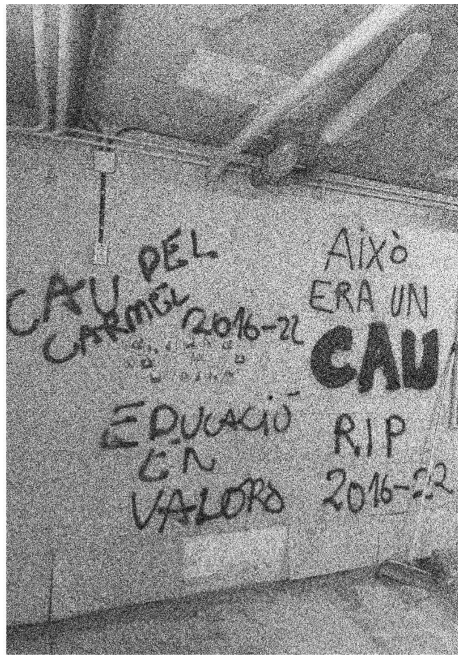 CAU DEL
CARMEL 2016-22
EDUCACIÓ
EN
VALORS
AIXÒ
ERA UN
CAU
RIP
2016-22